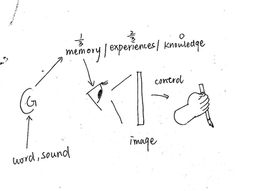 1/3 2/3 0
memory / experiences / knowledge
control
image
word, sound